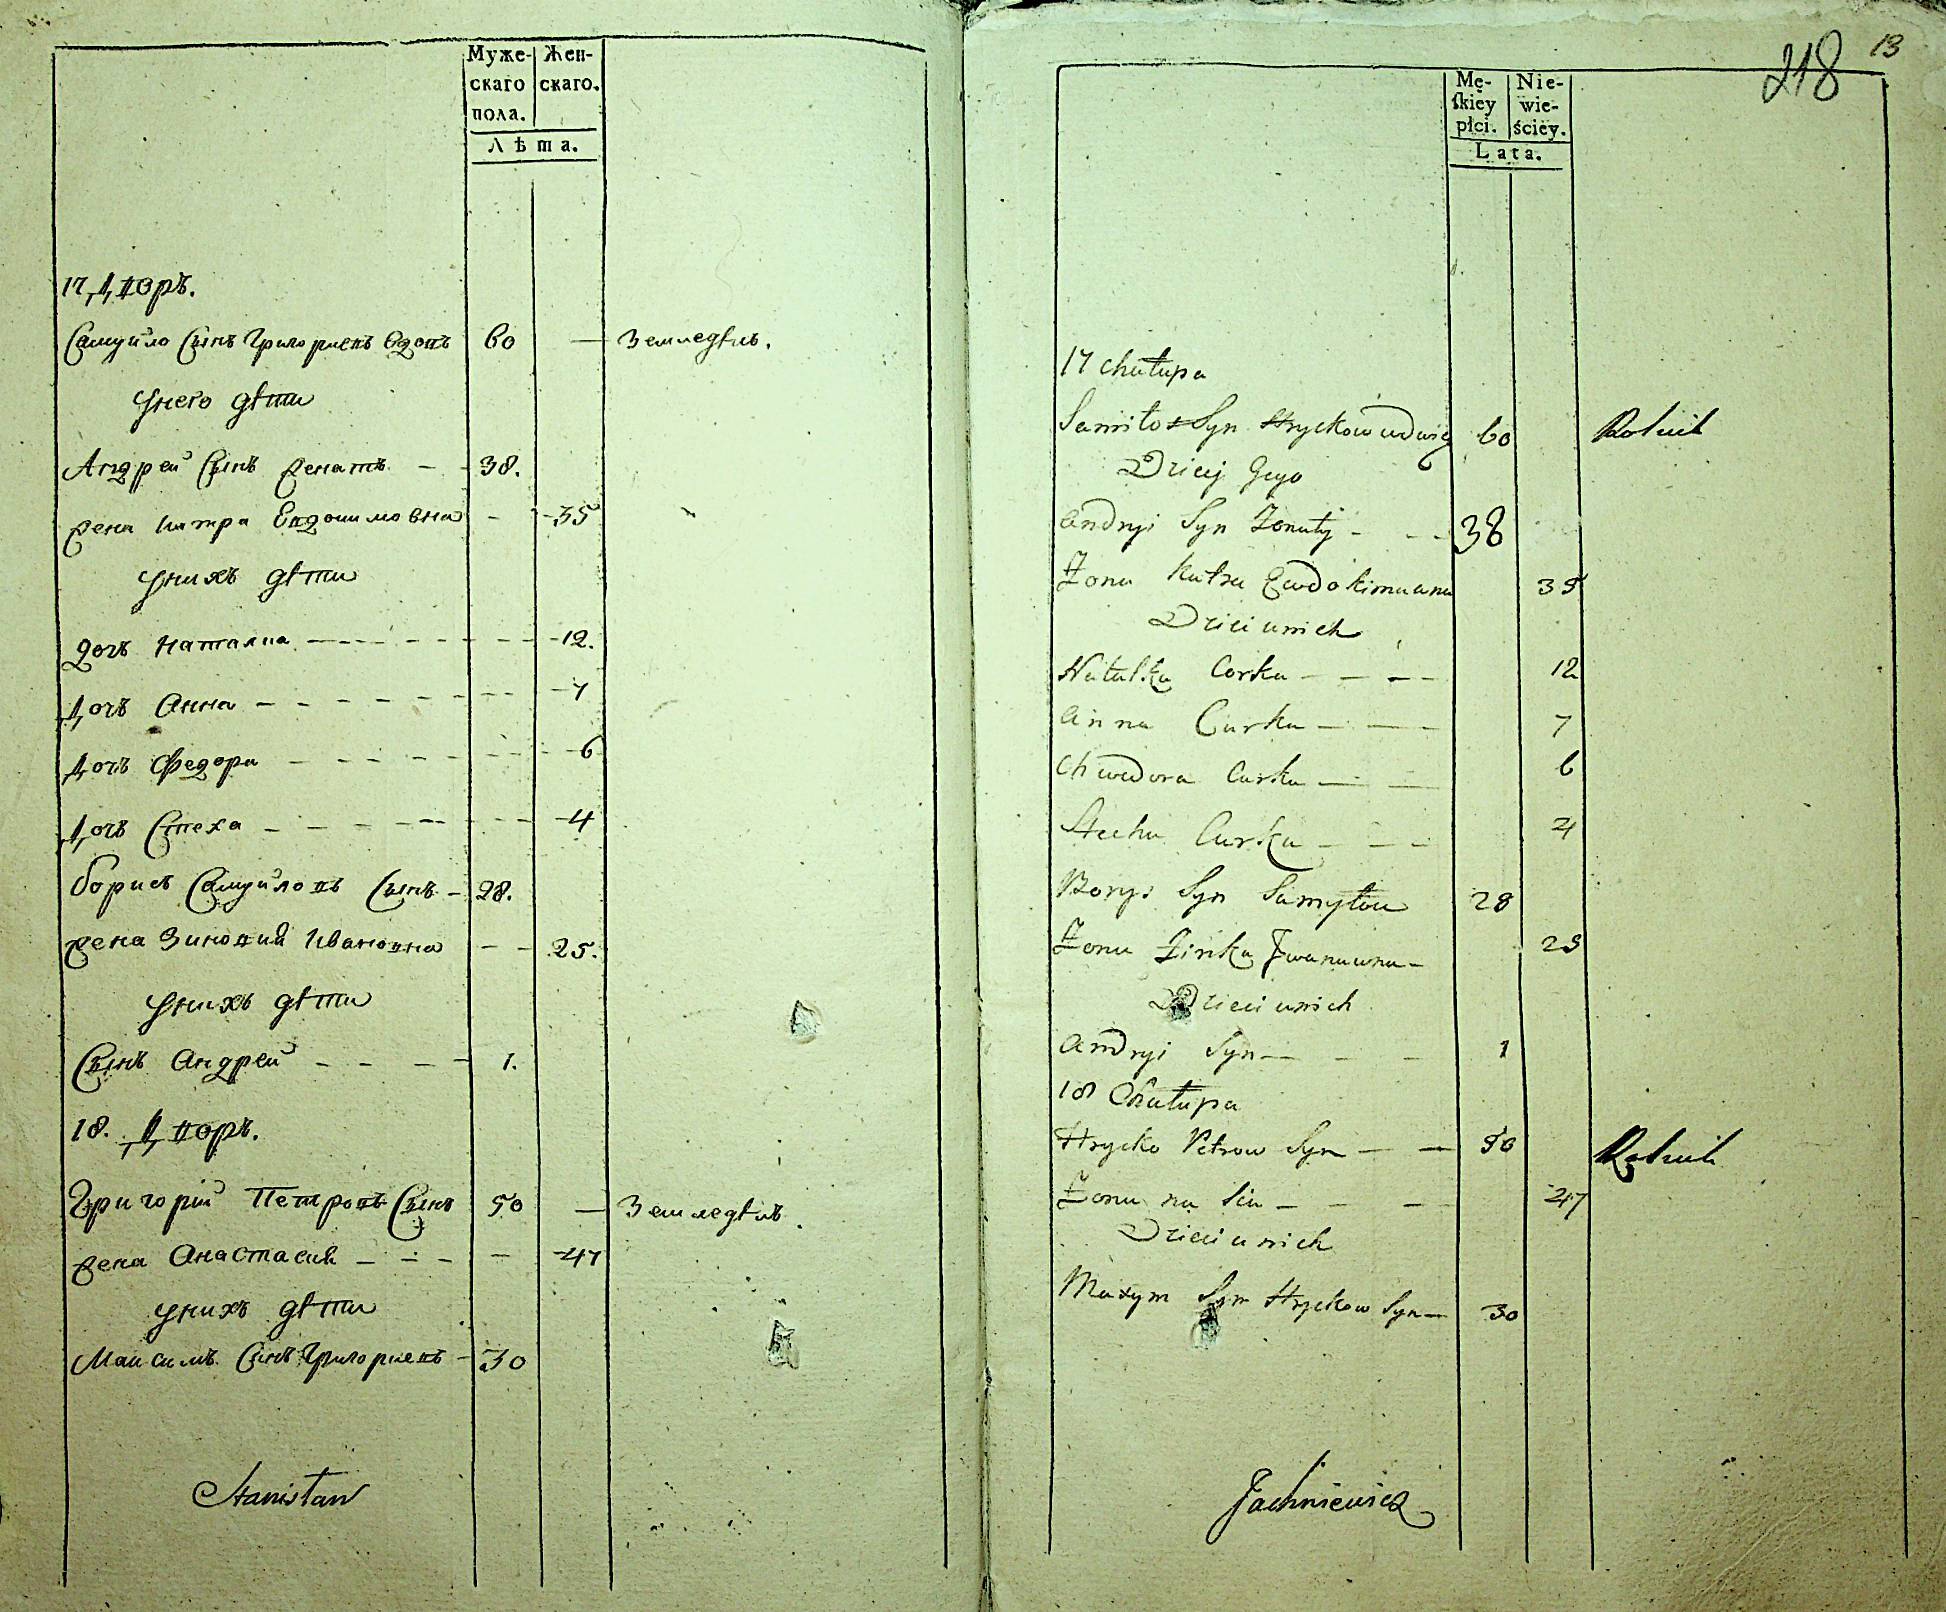 Муже- Жен-
скаго скаго.
пола.
Лѣта.
17. Дворъ.
Самуйло Сынъ Григориевъ Вдовъ 60 — Земледѣлъ.
У него дѣти
Андрей Сынъ женатъ — 38.
жена Катра Евдокимовна — 35
У нихъ дѣти
дочь Наталиа — 12.
Дочь Анна — 7
Дочь Федора — 6
Дочь Стеха — 4
Борисъ Самуйловъ Сынъ — 28.
жена Зиновия Ивановна — 25.
У нихъ дѣти
Сынъ Андрей — 1.
18. Дворъ.
Григорій Петровъ Сынъ 50 — Земледѣлъ.
жена Анастасия — 47
У нихъ дѣти
Максимъ Сынъ Григориевъ — 30
Stanisław
218 13
Mę- Nie-
skiey wie-
płci. ściey.
Lata.
17 Chałupa
Samiło Syn Hryckow wdwiec 60 Rolnik
Dzieci Jego
Andryi Syn Żonaty — 38
Żona Katra Ewdokimuwna 35
Dzieci unich
Natalka Corka — 12
Anna Curka — 7
Chwedora Curka — 6
Stecha Curka — 4
Borys Syn Samyłow 28
Żona Zinka Jwanuwna — 25
Dzieci unich
Andryi Syn — 1
18 Chałupa
Hrycko Petrow Syn — 50 Rolnik
Żona na Sia — 47
Dzieci unich
Maxym Syn Hryckow Syn — 30
Jachniewicz